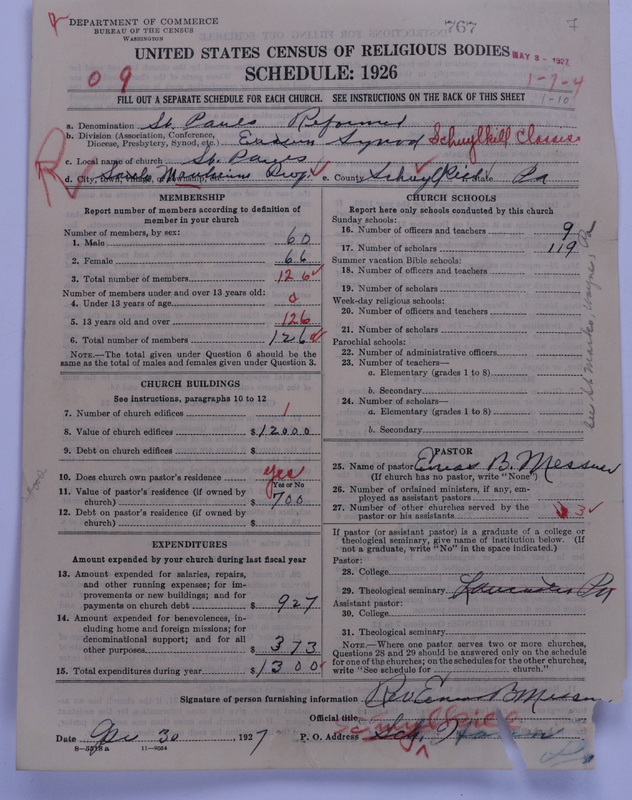 DEPARTMENT OF COMMERCE
BUREAU OF THE CENSUS
WASHINGTON
767
UNITED STATES CENSUS OF RELIGIOUS BODIES
MAY 3 - 1927
SCHEDULE: 1926
09
1-7-4
1-10
FILL OUT A SEPARATE SCHEDULE FOR EACH CHURCH. SEE INSTRUCTIONS ON THE BACK OF THIS SHEET
a. Denomination St. Pauls Reformed
b. Division (Association, Conference, Diocese, Presbytery, Synod, etc.) Eastern Synod Schuylkill Classis
c. Local name of church St. Pauls
d. City, town, village, or township, etc. South Manheim Twp e. County Schuylkill State Pa
MEMBERSHIP
Report number of members according to definition of
member in your church
Number of members, by sex:
1. Male 60
2. Female 66
3. Total number of members 126
Number of members under and over 13 years old:
4. Under 13 years of age 0
5. 13 years old and over 126
6. Total number of members 126
NOTE.—The total given under Question 6 should be
same as the total of males and females given under Question 3.
CHURCH BUILDINGS
See instructions, paragraphs 10 to 12
7. Number of church edifices 1
8. Value of church edifices $12000
9. Debt on church edifices $
10. Does church own pastor's residence yes
Yes or No
11. Value of pastor's residence (if owned by
church) $700
12. Debt on pastor's residence (if owned by
church) $
EXPENDITURES
Amount expended by your church during last fiscal year
13. Amount expended for salaries, repairs,
and other running expenses; for im-
provements or new buildings; and for
payments on church debt $927
14. Amount expended for benevolences, in-
cluding home and foreign missions; for
denominational support; and for all
other purposes $373
15. Total expenditures during year $1300
CHURCH SCHOOLS
Report here only schools conducted by this church
Sunday schools:
16. Number of officers and teachers 9
17. Number of scholars 119
Summer vacation Bible schools:
18. Number of officers and teachers
19. Number of scholars
Week-day religious schools:
20. Number of officers and teachers
21. Number of scholars
Parochial schools:
22. Number of administrative officers
23. Number of teachers—
a. Elementary (grades 1 to 8)
b. Secondary
24. Number of scholars—
a. Elementary (grades 1 to 8)
b. Secondary
See St Marks, Wayne, Pa
PASTOR
25. Name of pastor Enos B. Messner
(If church has no pastor, write "None")
26. Number of ordained ministers, if any, em-
ployed as assistant pastors
27. Number of other churches served by the
pastor or his assistants 3
If pastor (or assistant pastor) is a graduate of a college or
theological seminary, give name of institution below. (If
not a graduate, write "No" in the space indicated.)
Pastor:
28. College
29. Theological seminary Lancaster Pa
Assistant pastor:
30. College
31. Theological seminary
NOTE.—Where one pastor serves two or more churches,
Questions 28 and 29 should be answered only on the schedule
for one of the churches; on the schedules for the other churches,
write "See schedule for church."
Signature of person furnishing information Rev Enos B Messner
Official title
Date Apr 30, 1927 P. O. Address Schuylkill Sch. Haven
8-5518 a 11-9054